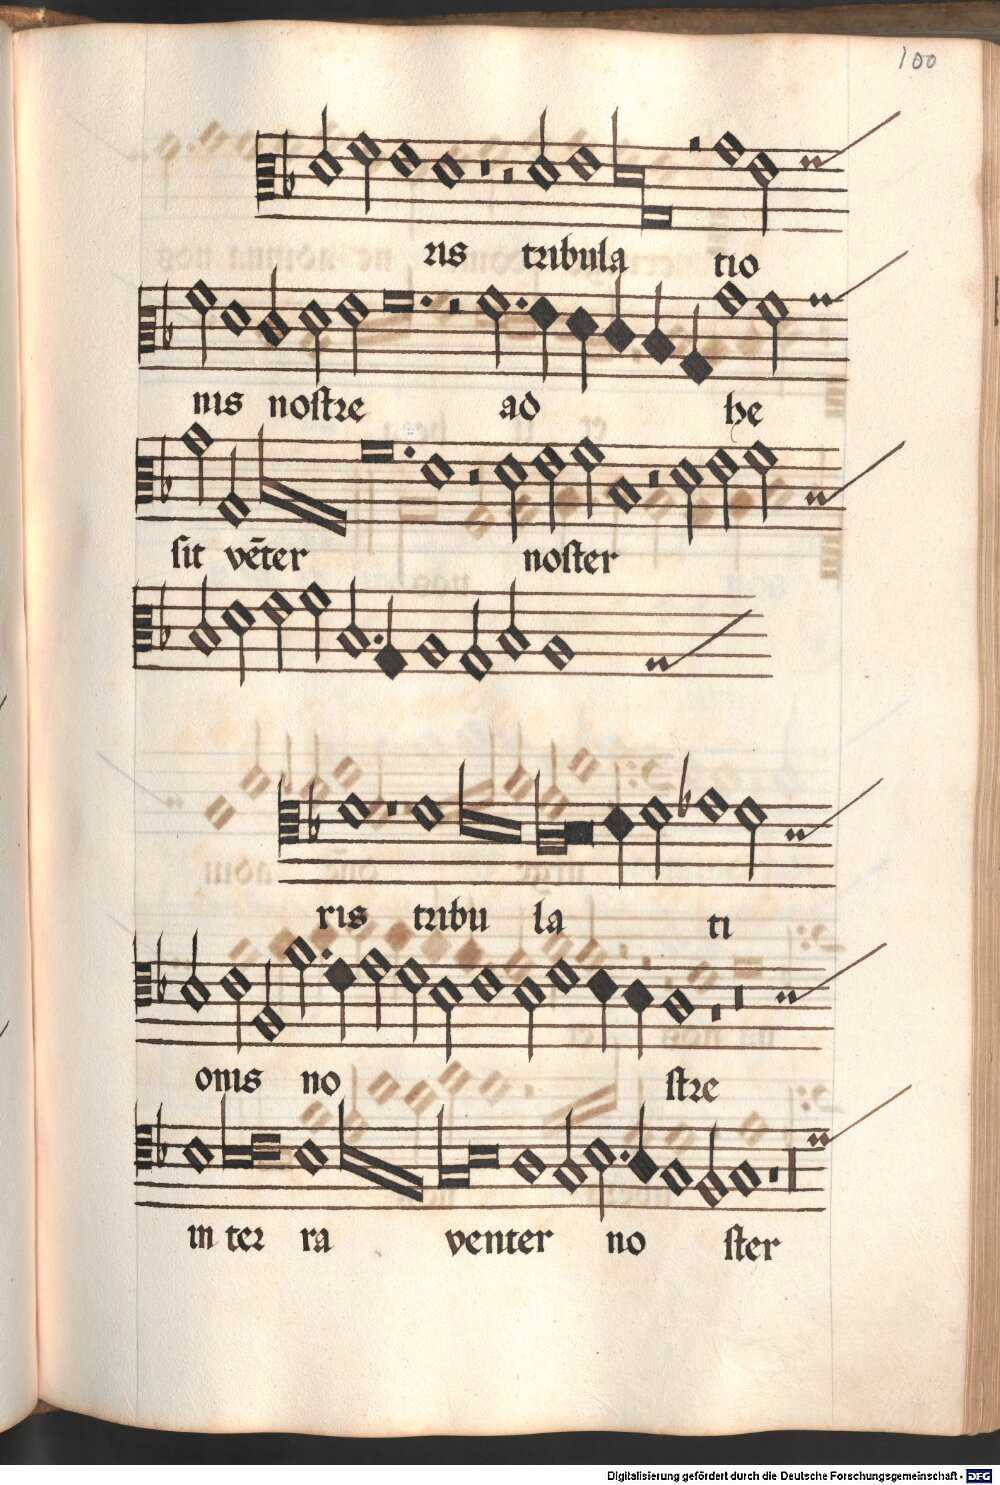 100
ris tribula tio
nis nostre ad he
sit vēter noster
ris tribu la ti
onis no stre
in ter ra venter no ster
Digitalisierung gefördert durch die Deutsche Forschungsgemeinschaft - DFG